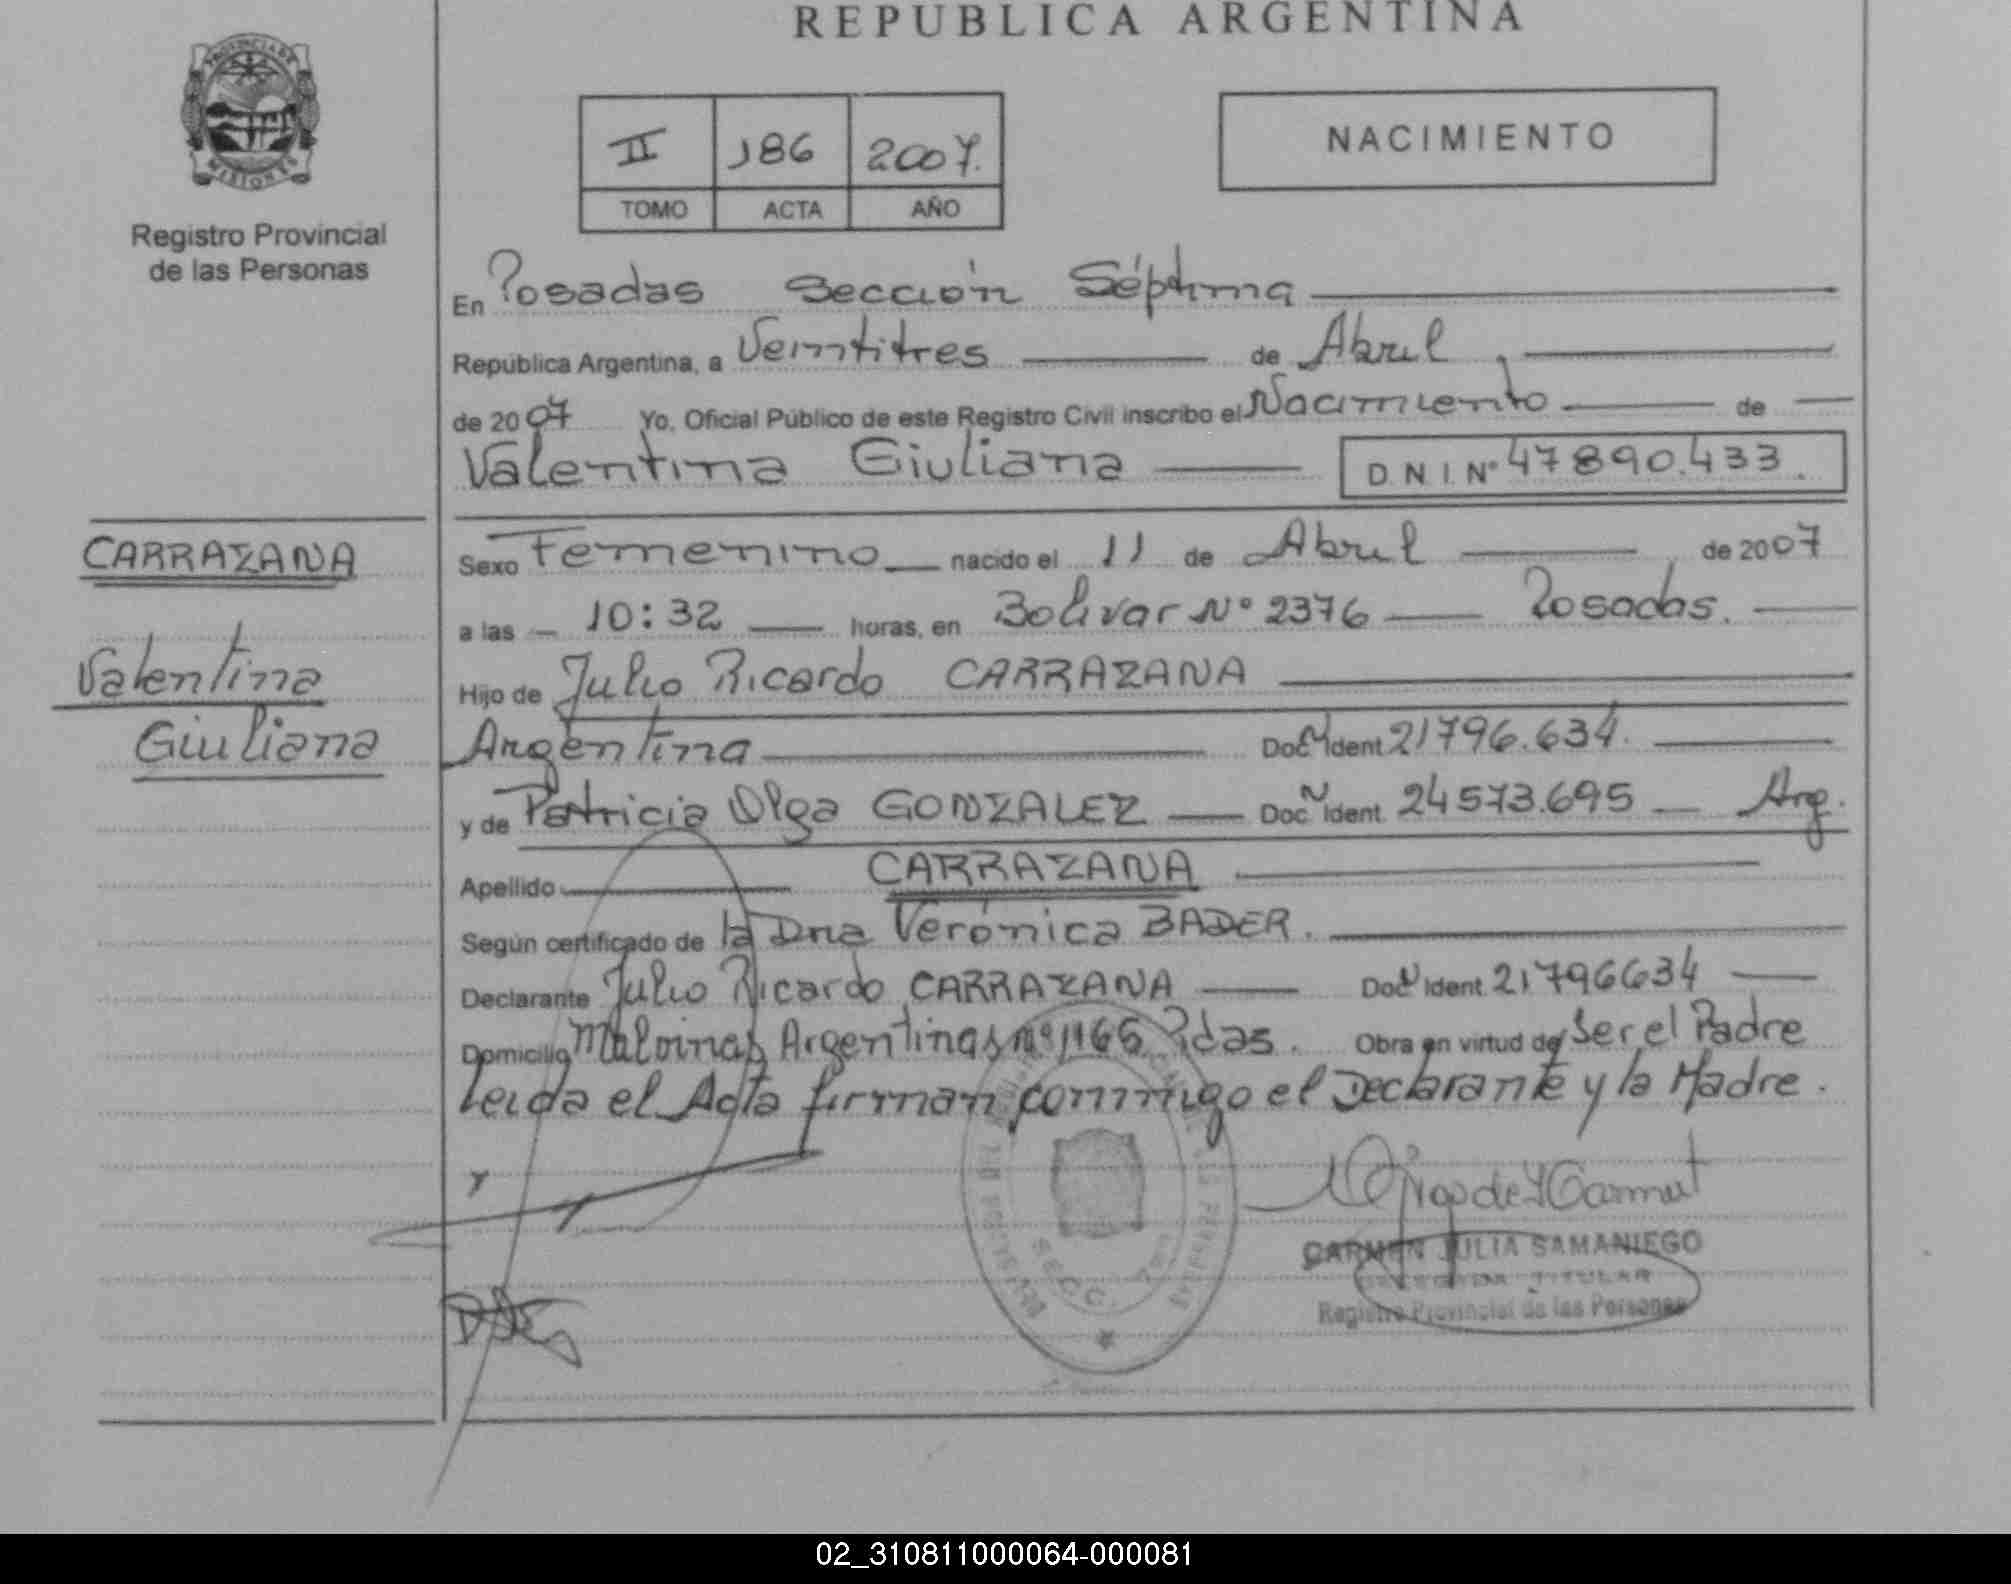 REPUBLICA ARGENTINA
PROVINCIA DE
MISIONES
Registro Provincial
de las Personas
II 186 2007.
TOMO ACTA AÑO
NACIMIENTO
En Posadas Sección Séptima
República Argentina, a Veintitres de Abril
de 2007 Yo, Oficial Público de este Registro Civil inscribo el Nacimiento de
Valentina Giuliana D.N.I. Nº 47890.433.
CARRAZANA
Valentina
Giuliana
Sexo Femenino nacido el 11 de Abril de 2007
a las 10:32 horas, en Bolivar Nº 2376 Posadas.
Hijo de Julio Ricardo CARRAZANA
Argentina Doc. Ident. 21796.634.
y de Patricia Olga GONZALEZ Doc. Ident. 24573.695 Arg.
Apellido CARRAZANA
Según certificado de la Dra Verónica BADER.
Declarante Julio Ricardo CARRAZANA Doc. Ident. 21796634
Domicilio Malvinas Argentinas Nº 1165 Pdas. Obra en virtud de Ser el Padre
Leida el Acta firman conmigo el Declarante y la Madre.
CARMEN JULIA SAMANIEGO
TITULAR
Registro Provincial de las Personas
SECC.
02_310811000064-000081